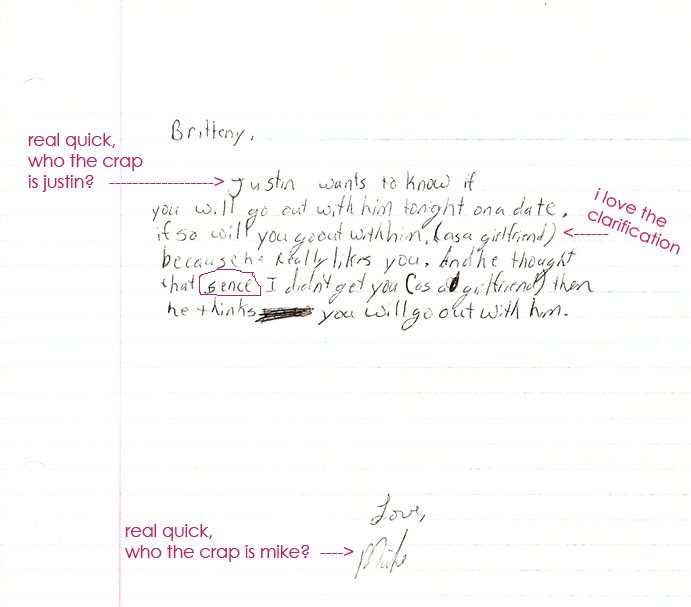 Britteny,
real quick,
who the crap
is justin? ------------------->
Justin wants to know if
you will go out with him tonight on a date.
i love the
clarification
<------
if so will you go out with him, (as a girlfriend)
because he Really likes you. And he thought
that sence I didn't get you (as a girlfriend) then
he thinks you will go out with him.
Love,
real quick,
who the crap is mike? ---->
Mike